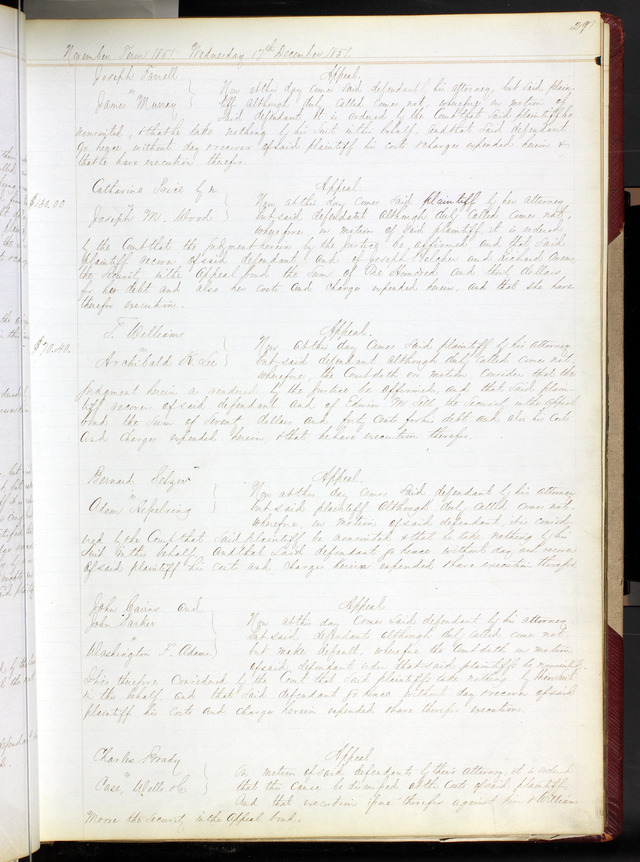 29
November Term 1851. Wednesday 17th December 1851.
Joseph Farrell
vs
James Murray
Appeal.
Now at this day comes said defendant by his attorney, but said plain-
tiff although duly called comes not, wherefore on motion of
said defendant it is ordered by the Court that said plaintiff be
nonsuited, & that he take nothing by his suit in this behalf, and that said defendant
go hence without day & recover of said plaintiff his costs & charges expended herein &
that he have execution therefor.
$130.00
Catharine
vs
Joseph M. Wood
Appeal
Now at this day comes said plaintiff by her attorney
but said defendant although duly called comes not,
wherefore on motion of said plaintiff it is ordered
by the Court that the judgment herein by the Justice be affirmed and that said
plaintiff recover of said defendant and of Joseph and Richard
the security in the Appeal bond the sum of One Hundred and thirty dollars
for her debt and also her costs and charges expended herein, and that she have
therefor execution.
$70.40.
T. William
vs
Archibald K Lee
Appeal.
Now at this day comes said plaintiff by his attorney
but said defendant although duly called comes not
wherefore the Court doth on motion consider that the
judgment herein as rendered by the Justice be affirmed, and that said plain-
tiff recover of said defendant and of Edwin W. the security in the appeal
bond the sum of seventy dollars and forty cents for his debt and also his costs
and charges expended herein, & that he have execution therefor.
Bernard
vs
Adam
Appeal.
Now at this day comes said defendant by his attorney
but said plaintiff although duly called comes not
wherefore on motion of said defendant it is consid-
ered by the Court that said plaintiff be nonsuited & that he take nothing by his
suit in this behalf, and that said defendant go hence without day and recover
of said plaintiff his costs and charges herein expended & have execution therefor
John Cairns and
John Parker
vs
Washington F. Adams
Appeal
Now at this day comes said defendant by his attorney
but said defendants although duly called come not
but make default, wherefore the Court doth on motion
of said defendant order that said plaintiffs be nonsuited.
It is therefore considered by the Court that said plaintiffs take nothing by their suit
in this behalf and that said defendant go hence without day & recover of said
plaintiff his costs and charges herein expended & have therefor execution.
Charles Brady
vs
Case, Wells & Co
Appeal
On motion of said defendants by their attorney it is ordered
that this cause be dismissed at the costs of said plaintiff
and that execution issue therefor against him & William
Moore the security in the Appeal bond.